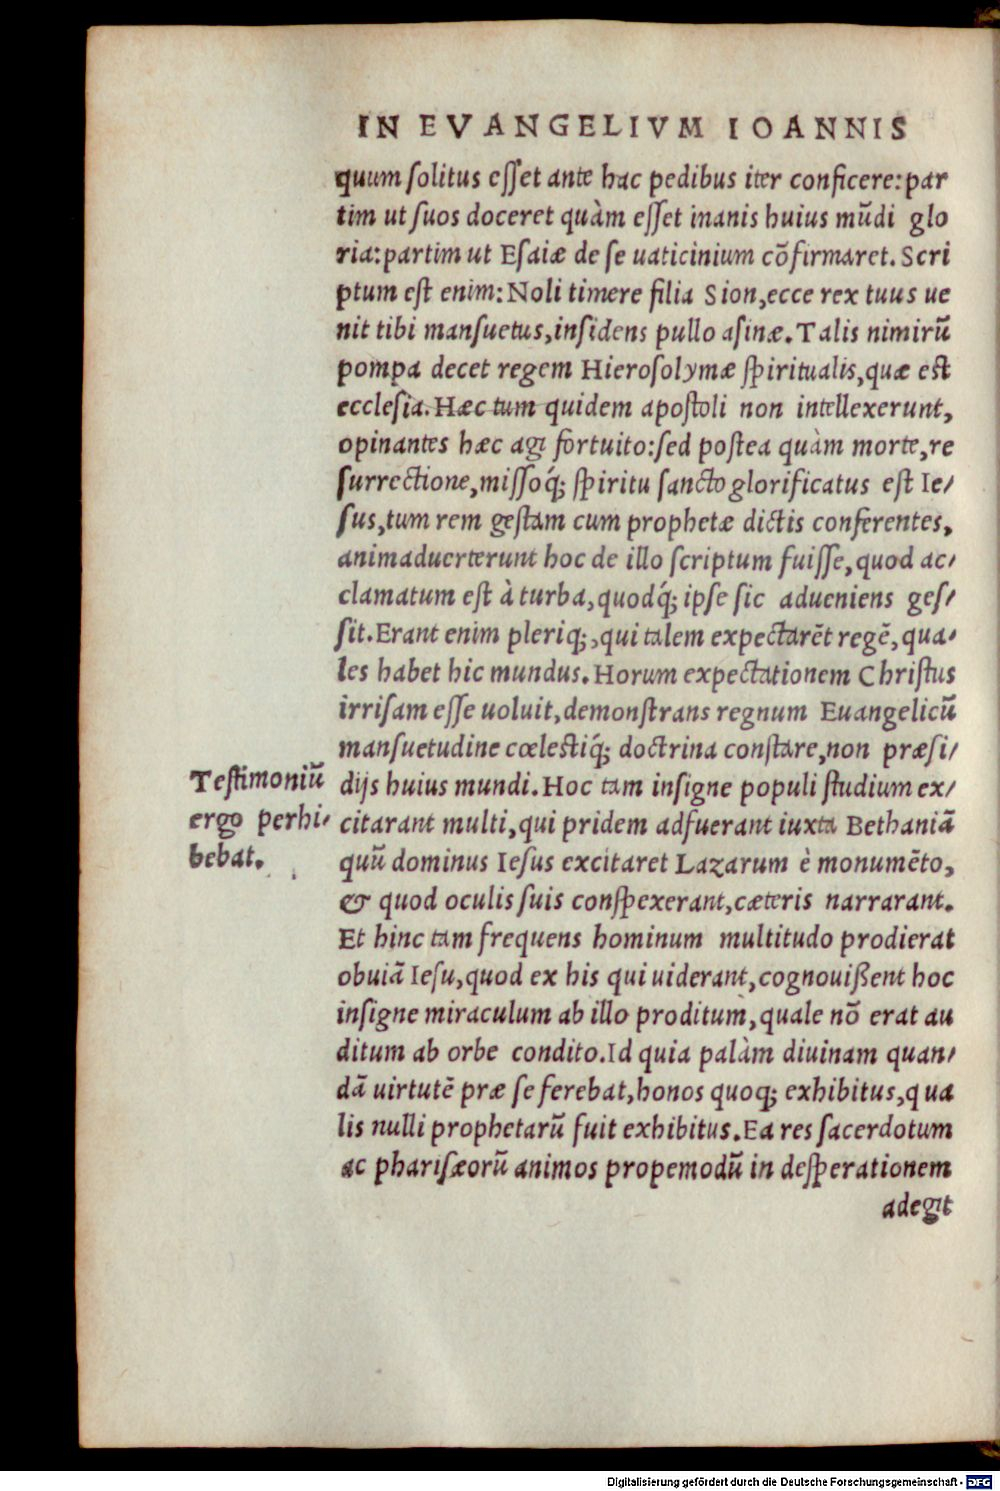 IN EVANGELIVM IOANNIS
quum solitus esset ante hac pedibus iter conficere: par
tim ut suos doceret quàm esset inanis huius mūdi glo
ria: partim ut Esaiæ de se uaticinium cōfirmaret. Scri
ptum est enim: Noli timere filia Sion, ecce rex tuus ue
nit tibi mansuetus, insidens pullo asinæ. Talis nimirū
pompa decet regem Hierosolymæ spiritualis, quæ est
ecclesia. Hæc tum quidem apostoli non intellexerunt,
opinantes hæc agi fortuito: sed postea quàm morte, re
surrectione, missoq́; spiritu sancto glorificatus est Ie/
sus, tum rem gestam cum prophetæ dictis conferentes,
animaduerterunt hoc de illo scriptum fuisse, quod ac/
clamatum est à turba, quodq́; ipse sic adueniens ges/
sit. Erant enim pleriq;, qui talem expectarēt regē, qua/
les habet hic mundus. Horum expectationem Christus
irrisam esse uoluit, demonstrans regnum Euangelicū
mansuetudine cœlestiq́; doctrina constare, non præsi/
dijs huius mundi. Hoc tam insigne populi studium ex/
citarant multi, qui pridem adfuerant iuxta Bethaniā
quū dominus Iesus excitaret Lazarum è monumēto,
& quod oculis suis conspexerant, cæteris narrarant.
Et hinc tam frequens hominum multitudo prodierat
obuiā Iesu, quod ex his qui uiderant, cognouißent hoc
insigne miraculum ab illo proditum, quale nō erat au
ditum ab orbe condito. Id quia palàm diuinam quan/
dā uirtutē præ se ferebat, honos quoq; exhibitus, qua
lis nulli prophetarū fuit exhibitus. Ea res sacerdotum
ac pharisæorū animos propemodū in desperationem
adegit
Testimoniū
ergo perhi/
bebat.
Digitalisierung gefördert durch die Deutsche Forschungsgemeinschaft - DFG